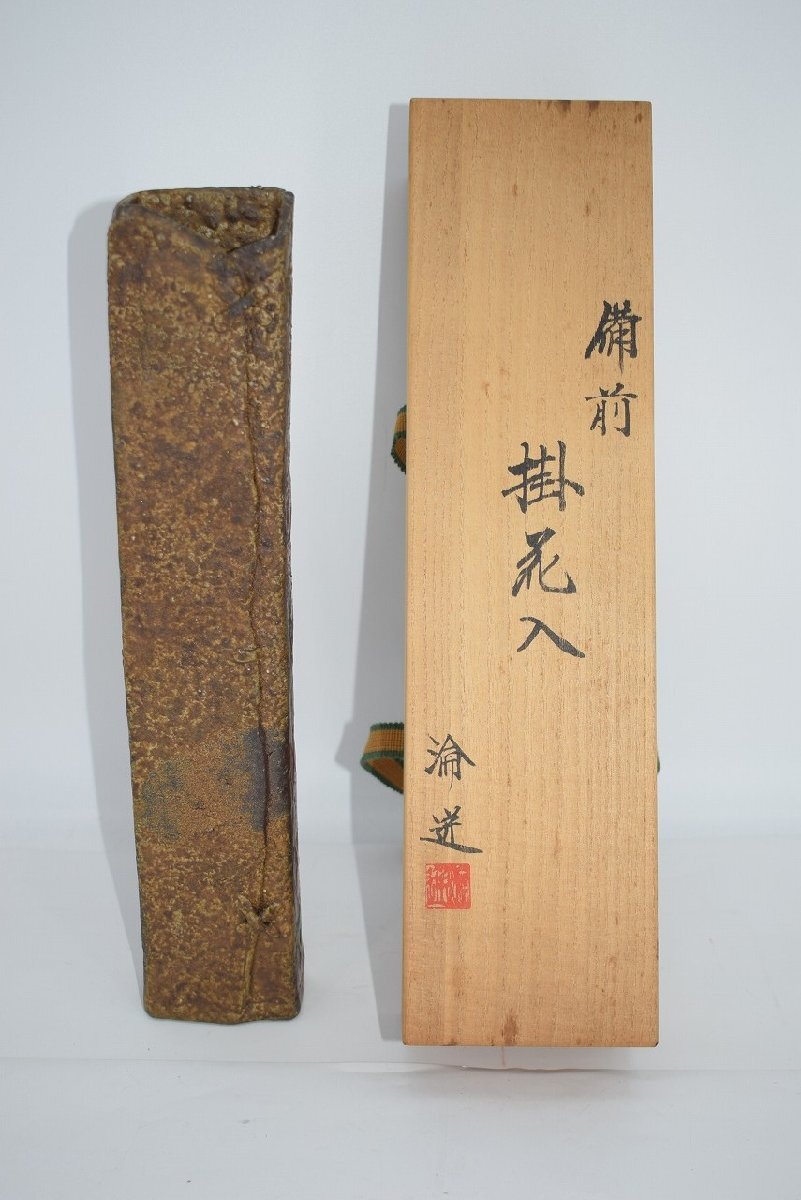 備前
掛花入
淪逆